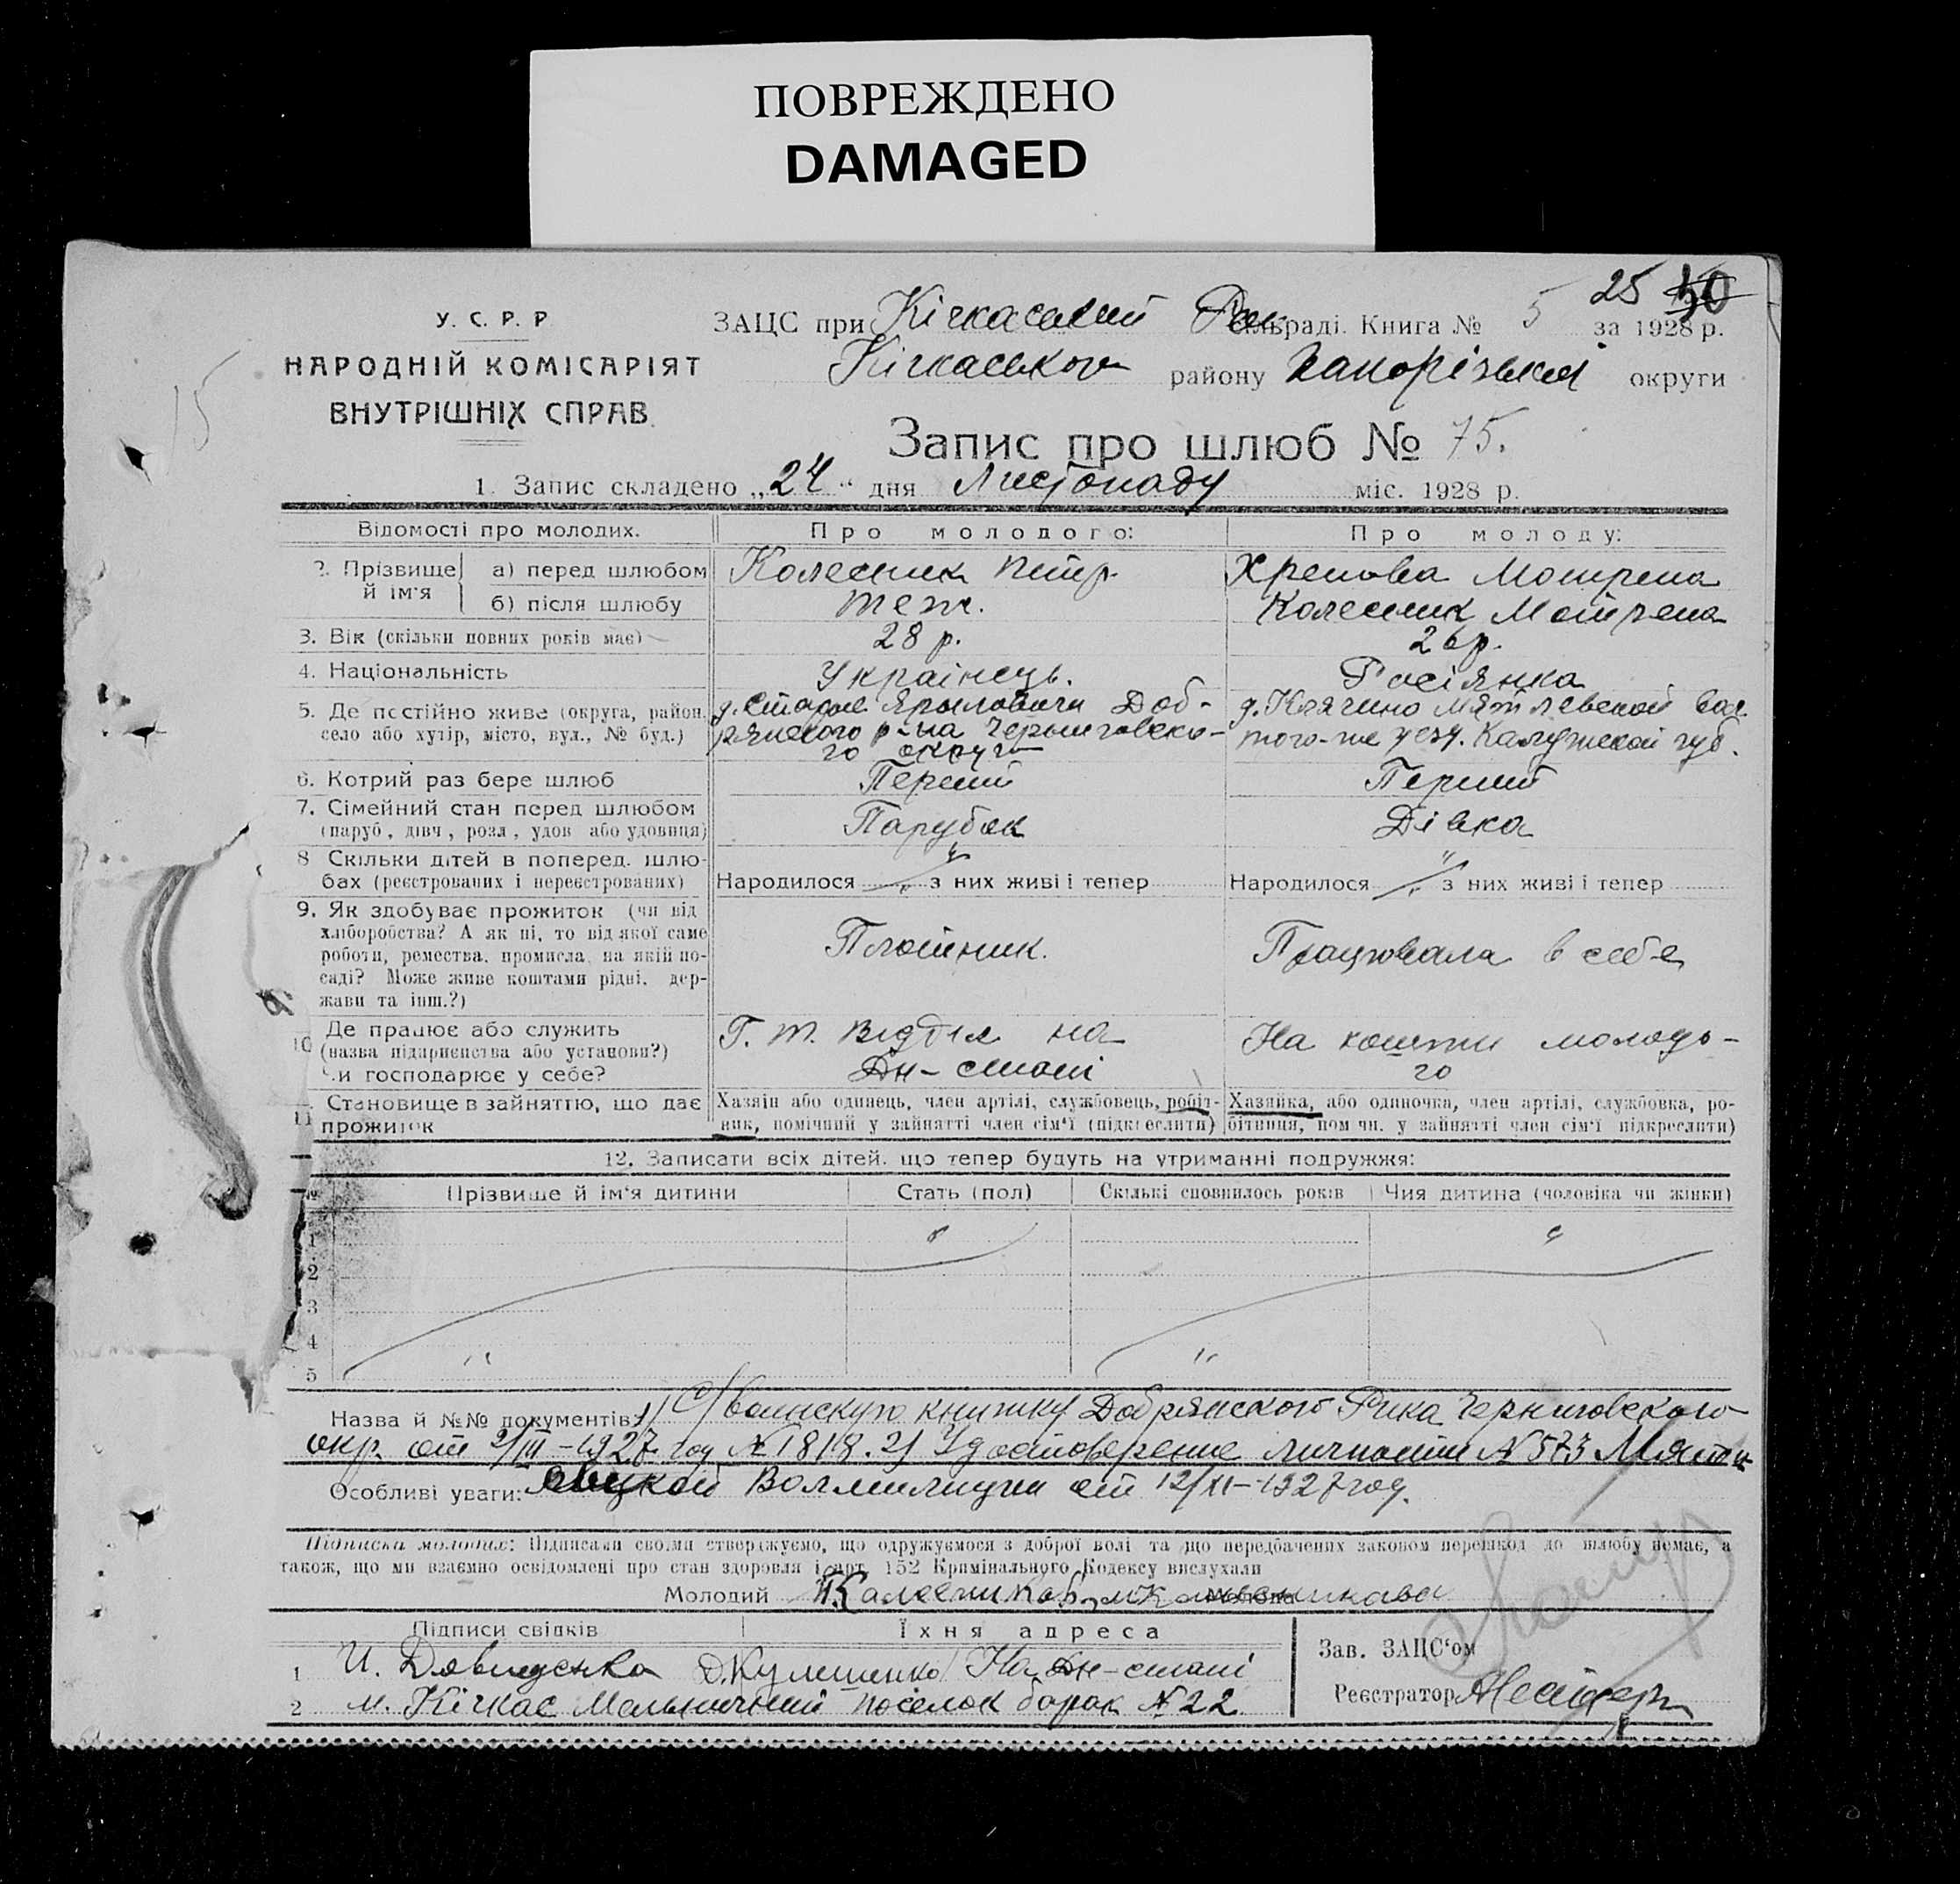 ПОВРЕЖДЕНО
DAMAGED
25 50
У. С. Р. Р
НАРОДНІЙ КОМІСАРІЯТ
ВНУТРІШНІХ СПРАВ.
15
ЗАЦС при Кічкаський раді. Книга № 5 за 1928 р.
Кічкаського району Запорізької округи
Запис про шлюб № 75.
1. Запис складено „24“ дня Листопаду міс. 1928 р.
Відомості про молодих. Про молодого: Про молоду:
2. Прізвище й ім'я а) перед шлюбом Колесник Петр Хренова Мотрена
б) після шлюбу теж. Колесник Мотрена
3. Вік (скільки повних років має) 28 р. 26 р.
4. Національність Українець. Росіянка
5. Де постійно живе (округа, район, д. Старые Ярыловичи Доб- д. Клячино Мятлевской вол.
село або хутір, місто, вул., № буд.) рянского р-на Черниговско- того-же уезд. Калужской губ.
го округ
6. Котрий раз бере шлюб Перший Перший
7. Сімейний стан перед шлюбом Парубок Дівка
(паруб., дівч., розл., удов. або удовиця)
8 Скільки дітей в поперед. шлю-
бах (реєстрованих і нереєстрованих) Народилося „ з них живі і тепер Народилося „ з них живі і тепер
9. Як здобуває прожиток (чи від
хліборобства? А як ні, то від якої саме
роботи, ремества, промисла, на якій по- Плотник. Працювала в себе
саді? Може живе коштами рідні, дер-
жави та інш.?)
10 Де працює або служить Г. т. Відділ на На кошти молодо-
(назва підприємства або установи?)
Чи господарює у себе? Дн-стані го
11 Становище в зайняттю, що дає Хазяїн або одинець, член артілі, службовець, робіт- Хазяйка, або одиночка, член артілі, службовка, ро-
прожиток ник, помічний у зайнятті член сім'ї (підкреслити) бітниця, пом чн. у зайнятті член сім'ї підкреслити)
12. Записати всіх дітей, що тепер будуть на утриманні подружжя:
№ Прізвище й ім'я дитини Стать (пол) Скількі сповнилось років Чия дитина (чоловіка чи жінки)
1
2
3
4
5
Назва й №№ документів: 1/ воинскую книжку Добрянского Рика Черниговского
окр. от 2/III-1927 год № 1818. 2) Удостоверение личности № 573 Мят
Особливі уваги: левской Волмилиции от 12/XI-1927 год.
Підписка молодих: Підписами своїми стверджуємо, що одружуємося з доброї волі та що передбачених законом перешкод до шлюбу немає, а
також, що ми взаємно освідомлені про стан здоровля і арт. 152 Кримінального Кодексу вислухали
Молодий П. Калесников Молода
Підписи свідків Їхня адреса
1 И. Довиденко Д. Кулешенко На Дн-стані
2 м. Кічкас Мельничний поселок барак № 22
Зав. ЗАЦС'ом
Реєстратор